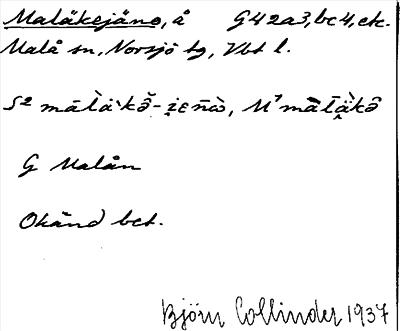 Malåkejäno, å G42a3, bc4, etc.
Malå sn, Norsjö tg, Vbt l.
S² mālà·kə̑-i̯enō,
G Malån
Okänd bet.
Björn Collinder 1937